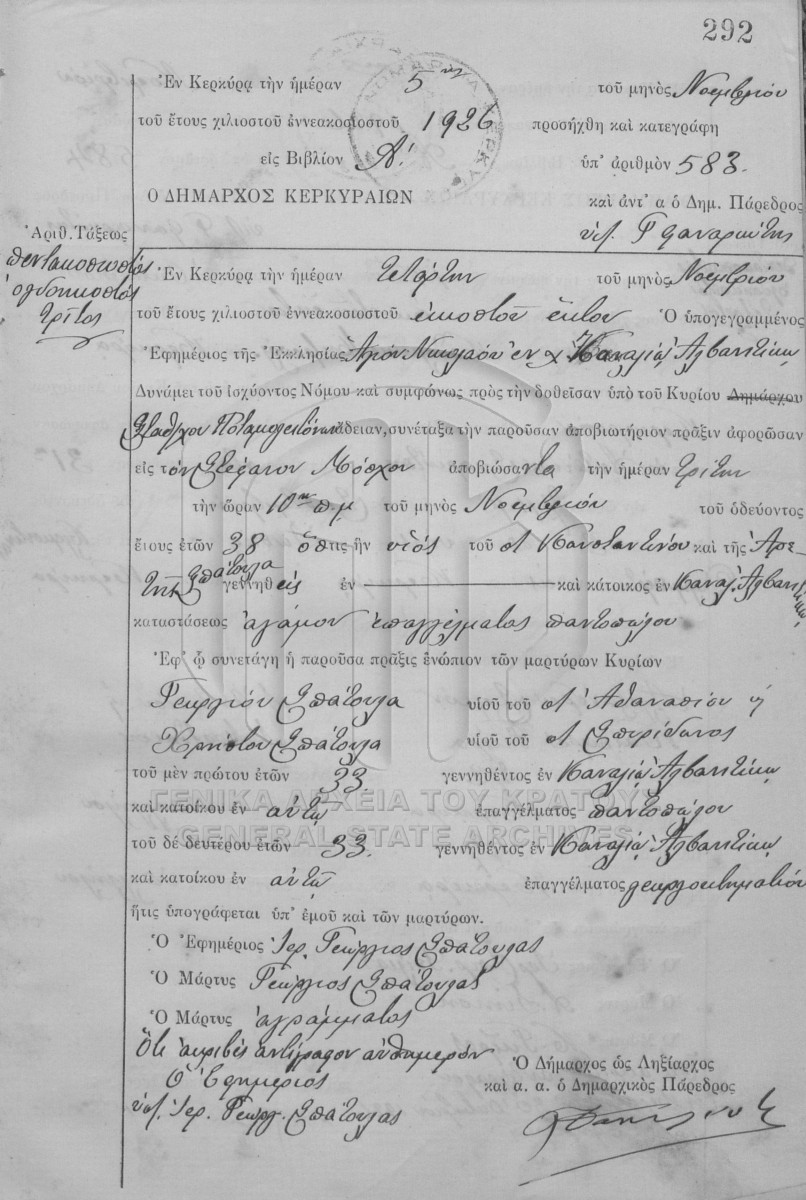 292
Ἐν Κερκύρᾳ τὴν ἡμέραν 5ην τοῦ μηνὸς Νοεμβρίου
τοῦ ἔτους χιλιοστοῦ ἐννεακοσιοστοῦ 1926 προσήχθη καὶ κατεγράφη
εἰς Βιβλίον Α! ὑπ' ἀριθμὸν 583.
Ο ΔΗΜΑΡΧΟΣ ΚΕΡΚΥΡΑΙΩΝ καὶ ἀντ' α ὁ Δημ. Πάρεδρος
Ἀριθ. Τάξεως
πεντακοσιοστὸς
ὀγδοηκοστὸς
τρίτος
Ἐν Κερκύρᾳ τὴν ἡμέραν τετάρτην τοῦ μηνὸς Νοεμβρίου
τοῦ ἔτους χιλιοστοῦ ἐννεακοσιοστοῦ εἰκοστοῦ ἕκτου Ὁ ὑπογεγραμμένος
Ἐφημέριος τῆς Ἐκκλησίας Ἁγίου Νικολάου ἐν Καναλίᾳ Ἀλβανιτίκῃ
Δυνάμει τοῦ ἰσχύοντος Νόμου καὶ συμφώνως πρὸς τὴν δοθεῖσαν ὑπὸ τοῦ Κυρίου Δημάρχου
ἄδειαν, συνέταξα τὴν παροῦσαν ἀποβιωτήριον πρᾶξιν ἀφορῶσαν
εἰς τὸν Στέφανον Μόσχον ἀποβιώσαντα τὴν ἡμέραν τρίτην
τὴν ὥραν 10ην π.μ τοῦ μηνὸς Νοεμβρίου τοῦ ὁδεύοντος
ἔτους ἐτῶν 38 ὅστις ἦν υἱὸς τοῦ Κωνσταντίνου καὶ τῆς Ἀρε-
τῆς Σπάτουλα γεννηθείς ἐν καὶ κάτοικος ἐν Καναλ. Ἀλβανιτίκῃ
καταστάσεως ἀγάμου ἐπαγγέλματος παντοπώλου
Ἐφ' ᾧ συνετάγη ἡ παροῦσα πρᾶξις ἐνώπιον τῶν μαρτύρων Κυρίων
Γεωργίου Σπάτουλα υἱοῦ τοῦ Ἀθανασίου ἡ
Χρήστου Σπάτουλα υἱοῦ τοῦ Σπυρίδωνος
τοῦ μὲν πρώτου ἐτῶν 33 γεννηθέντος ἐν Καναλίᾳ Ἀλβανιτίκῃ
ΓΕΝΙΚΑ ΑΡΧΕΙΑ ΤΟΥ ΚΡΑΤΟΥΣ
καὶ κατοίκου ἐν αὐτῇ ἐπαγγέλματος παντοπώλου
GENERAL STATE ARCHIVES
τοῦ δέ δευτέρου ἐτῶν 33. γεννηθέντος ἐν Καναλίᾳ Ἀλβανιτίκῃ
καὶ κατοίκου ἐν αὐτῇ ἐπαγγέλματος γεωργοκτηματίου
ἥτις ὑπογράφεται ὑπ' ἐμοῦ καὶ τῶν μαρτύρων.
Ὁ Ἐφημέριος Ἱερ. Γεώργιος Σπάτουλας
Ὁ Μάρτυς Γεώργιος Σπάτουλας
Ὁ Μάρτυς ἀγράμματος
Ὅτι ἀκριβές ἀντίγραφον αὐθημερόν
Ὁ Ἐφημέριος
υπ. Ἱερ. Γεωργ. Σπάτουλας
Ὁ Δήμαρχος ὡς Ληξίαρχος
καὶ α. α. ὁ Δημαρχικὸς Πάρεδρος